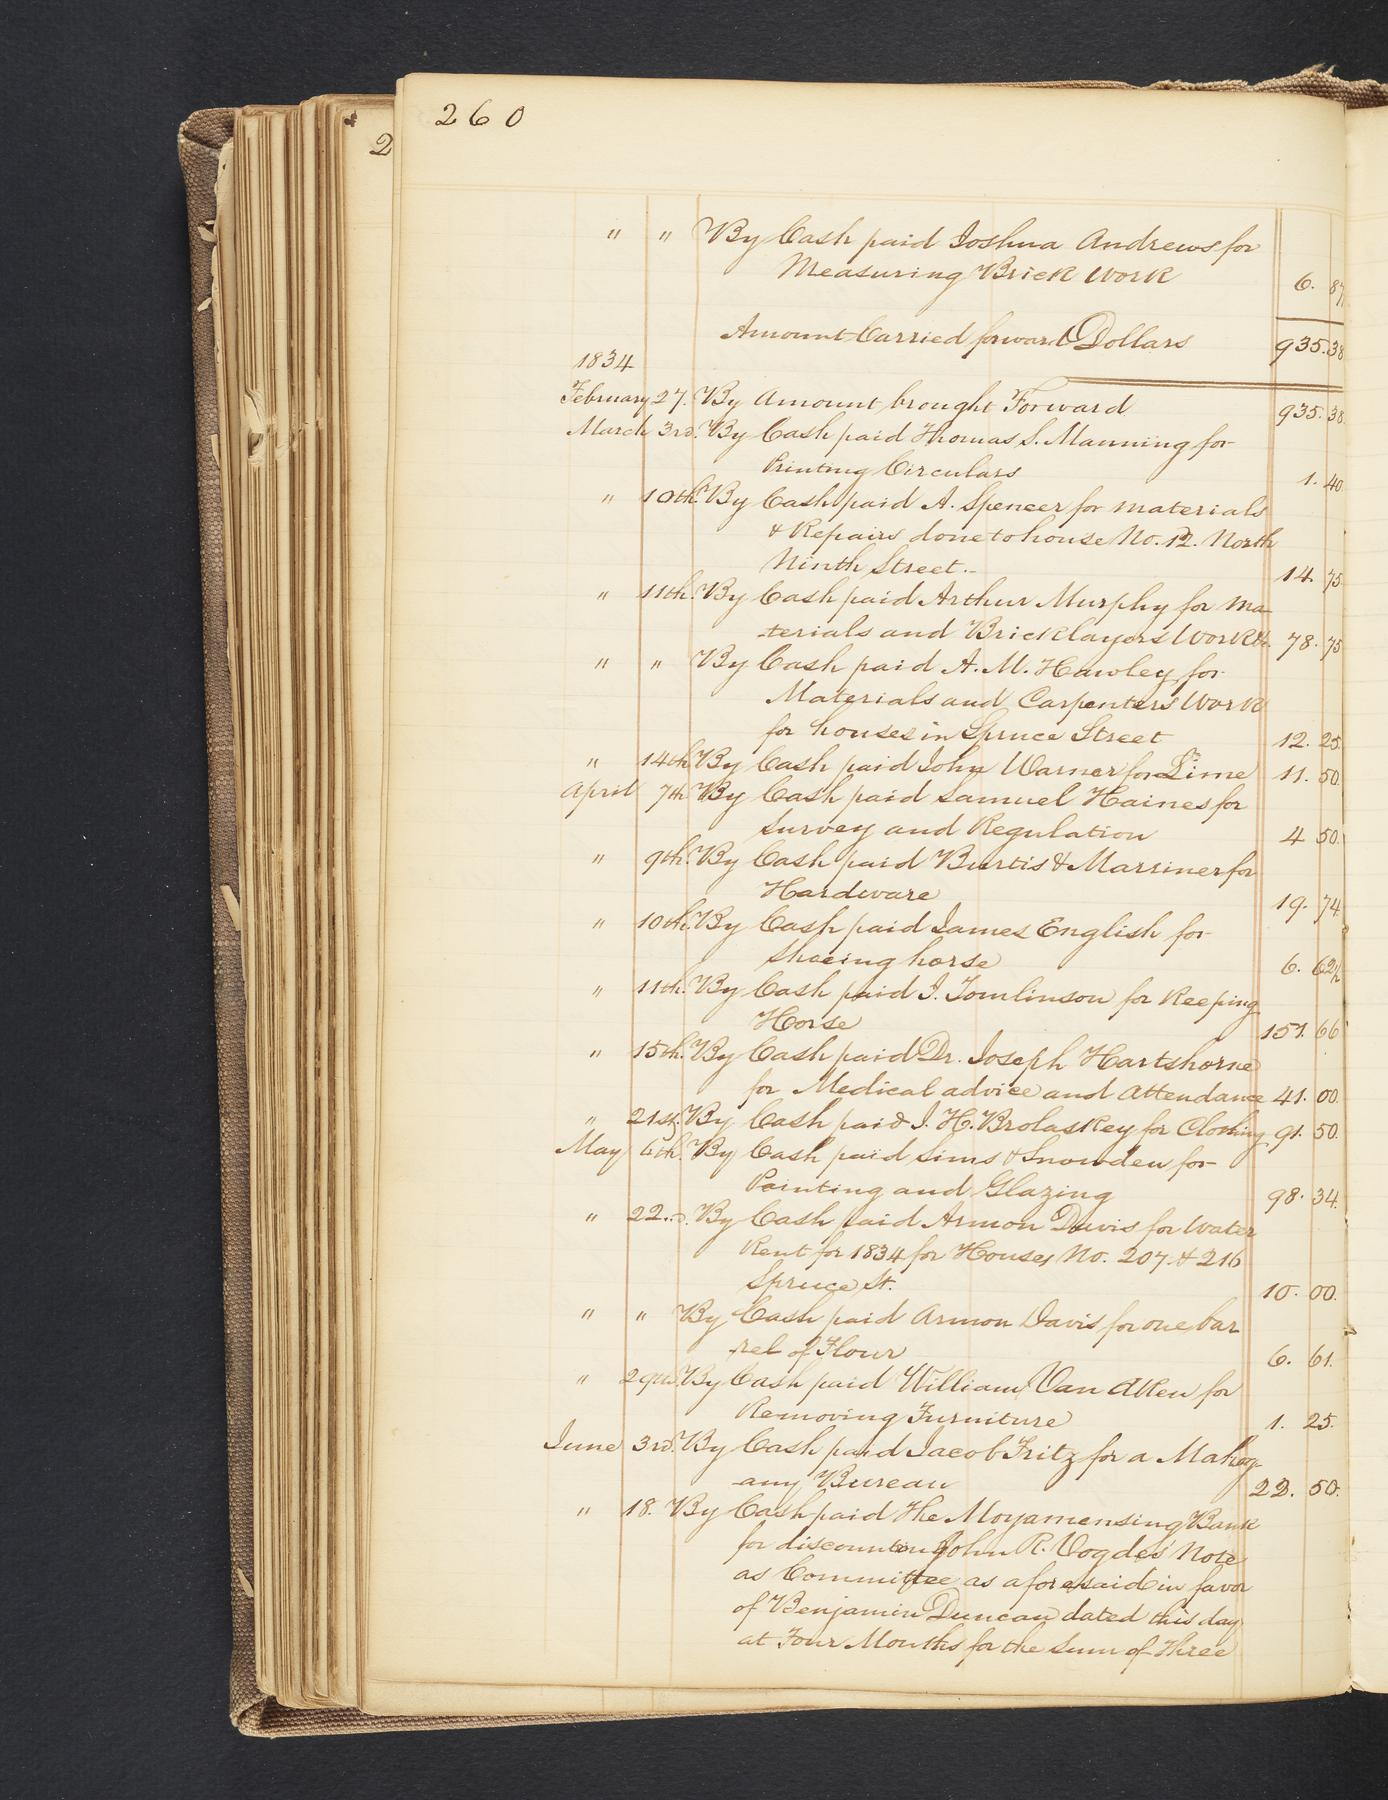 260
2
" " By Cash paid Joshua Andrews for
Measuring Brick Work 6. 87
Amount Carried forward Dollars 935.38
1834
February 27. By Amount brought Forward 935. 38
March 3rd. By Cash paid Thomas S. Manning for
Printing Circulars 1. 40
" 10th. By Cash paid A. Spencer for materials
& Repairs done to house No. 12. North
Ninth Street.. 14. 75
" 11th. By Cash paid Arthur Murphy for ma
terials and Bricklayers Work &c. 78. 75
" " By Cash paid A. M. Hawley for
Materials and Carpenters Work
for houses in Spruce Street 12. 25
" 14th By Cash paid John Warner for Lime 11. 50
April 7th By Cash paid Samuel Haines for
Survey and Regulation 4 50.
" 9th. By Cash paid Burtis & Marriner for
Hardware 19. 74
" 10th. By Cash paid James English for
Shoeing horse 6. 62½
" 11th. By Cash paid J. Tomlinson for Keeping
Horse 151. 66
" 15th. By Cash paid Dr. Joseph Hartshorne
for Medical advice and Attendance 41. 00.
" 21st. By Cash paid J. H. Brolaskey for Clothing 91. 50.
May 6th. By Cash paid Sims & Snowden for
Painting and Glazing 98. 34.
" 22..d. By Cash paid Armon Davis for Water
Rent for 1834 for Houses No. 207. & 216
Spruce St. 10. 00.
" " By Cash paid Armon Davis for one bar
rel of Flour 6. 61.
" 29th. By Cash paid William Van Aken for
Removing Furniture 1. 25.
June 3rd. By Cash paid Jacob Fritz for a Mahog-
any Bureau 22. 50.
" 18. By Cash paid The Moyamensing Bank
for discounting John R. Vogdes' Note
as Committee as aforesaid in favor
of Benjamin Duncan dated this day
at Four Months for the Sum of Three